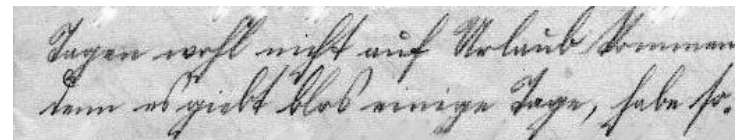 Tagen wohl nicht auf Urlaub kommen
denn es giebt blos einige Tage, habe so-